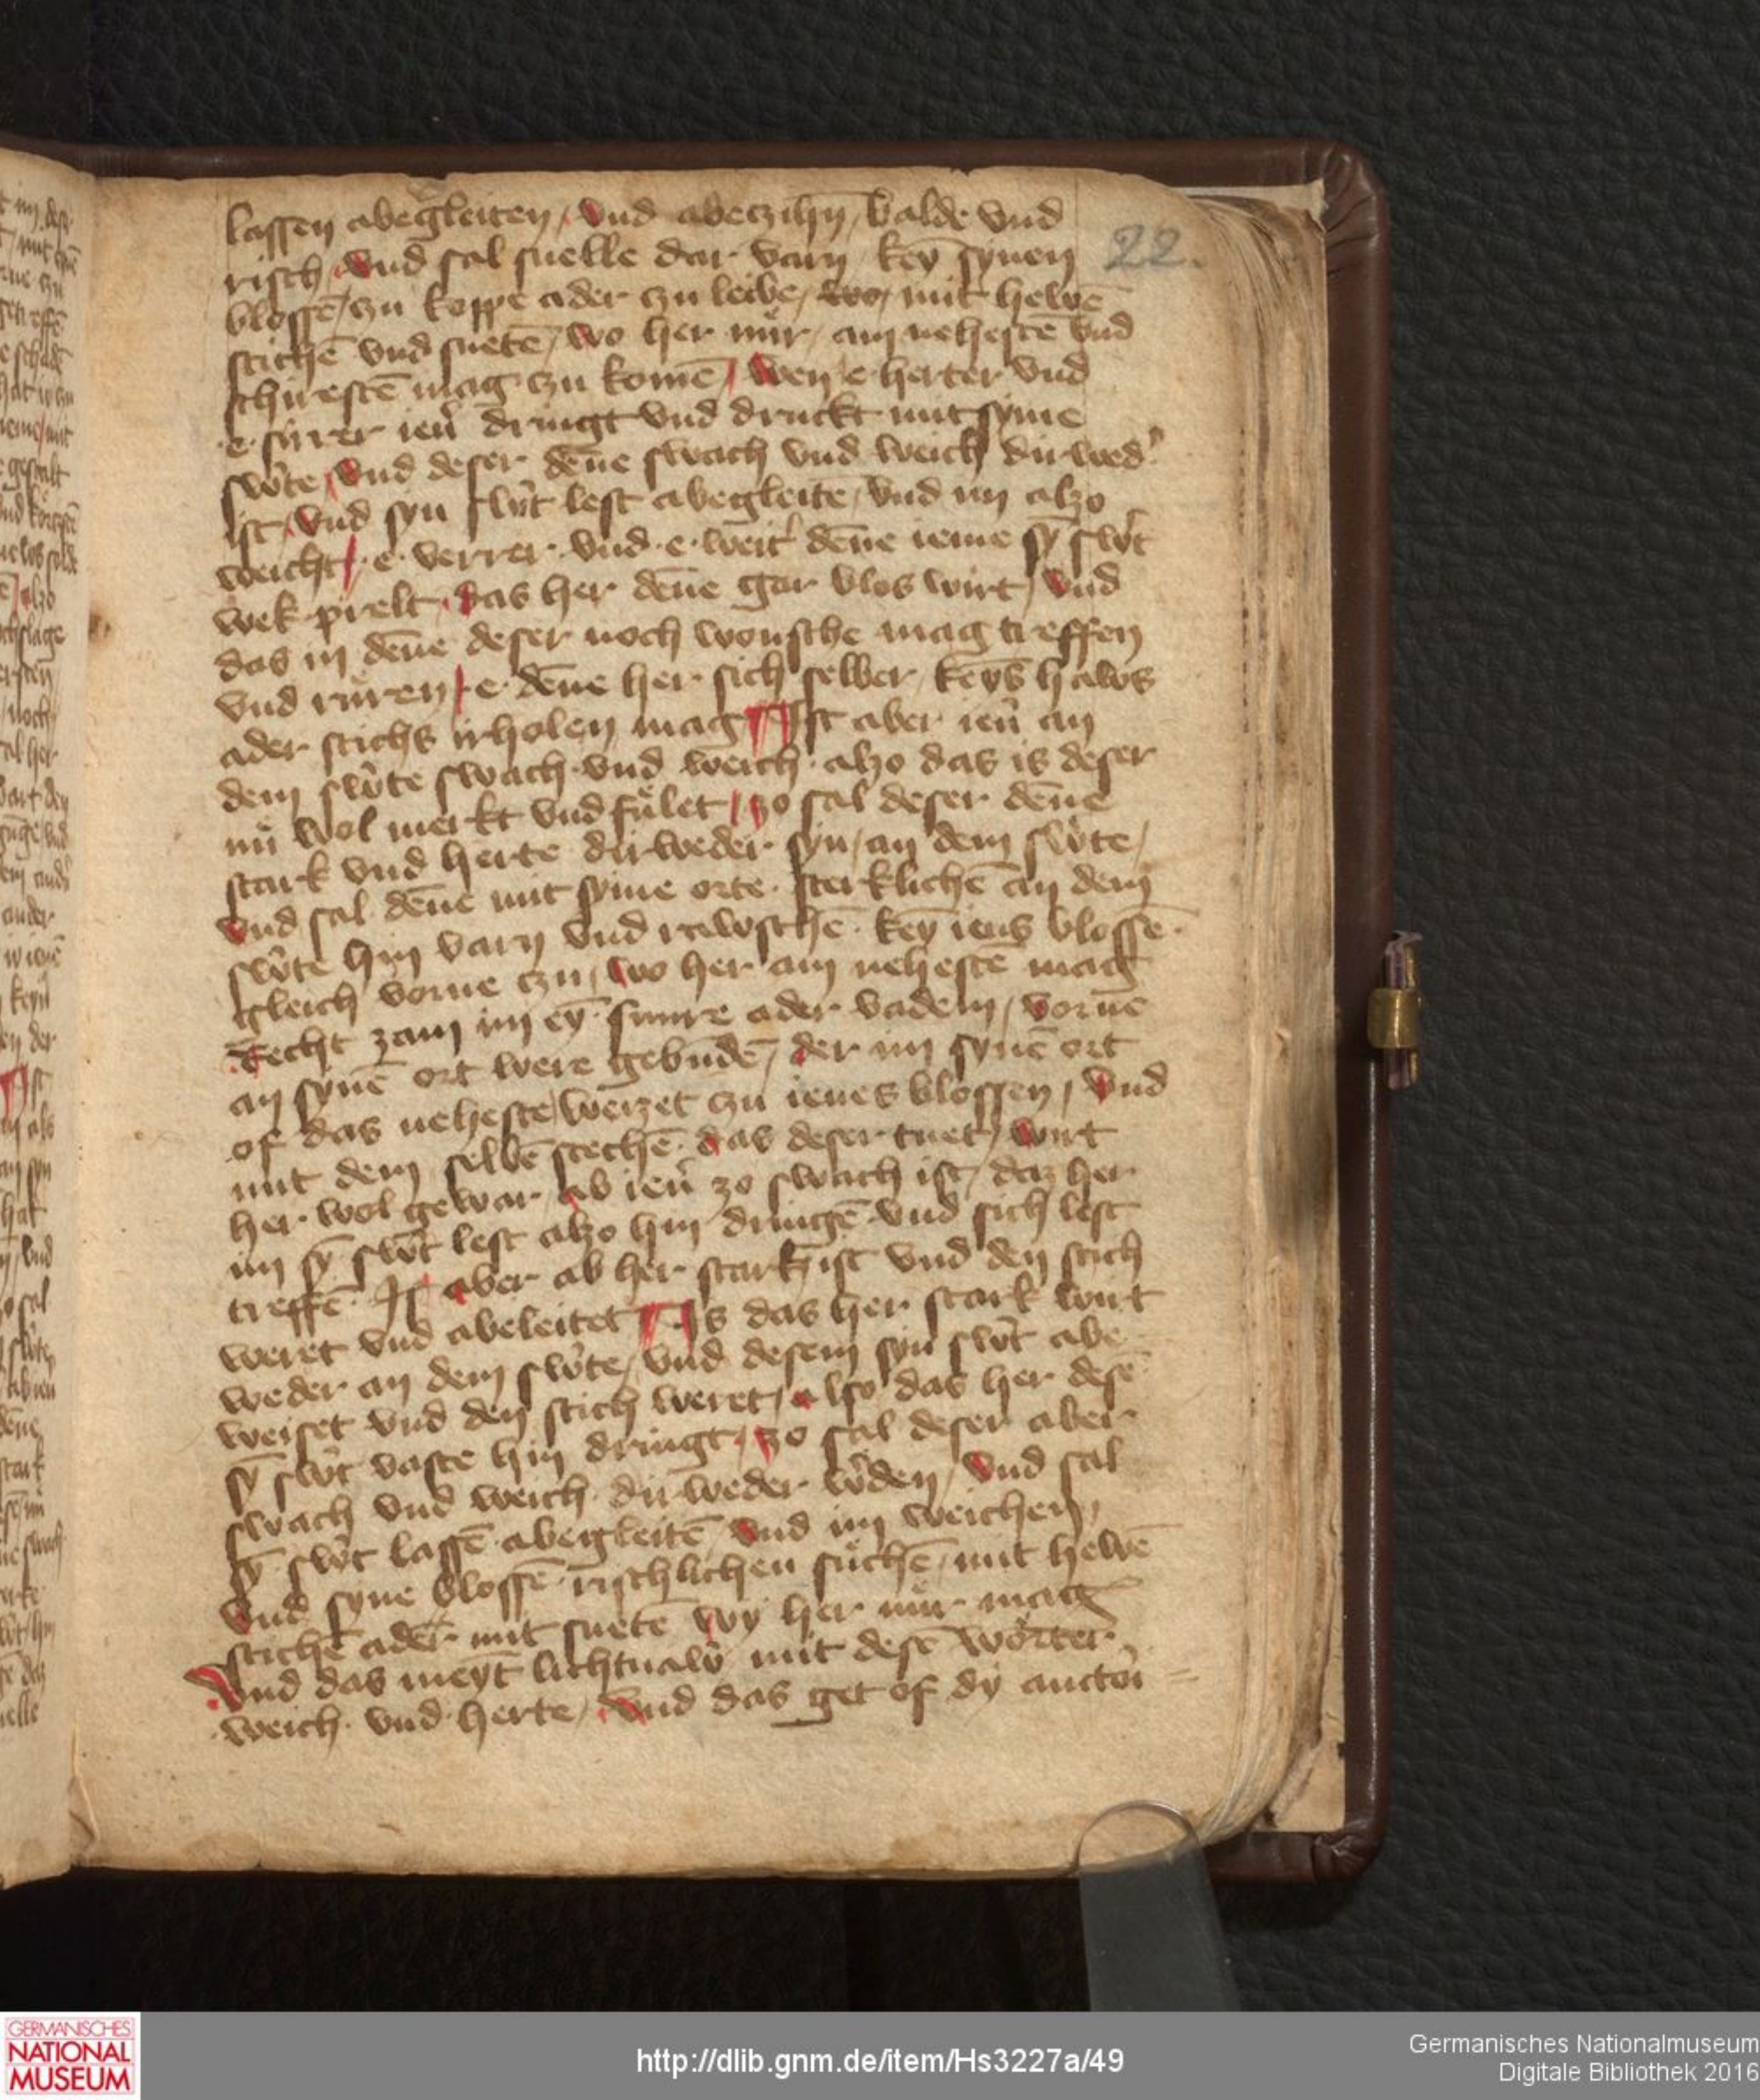 lassen abegleiten / vnd abeczihn / balde vnd
22.
risch / vnd sal snelle dar varn / keyn synen
blossē / zu koppe ader czu leibe / wo / mit hewē
stichē vnd snetē / wo her nür / am nehestē vnd
schirestē mag czu komē / wen e herter vnd
·e· sürer ien̄ dringt vnd druckt mit syme
sw̄te / vnd deser dēne swach vnd weich dirwed̄
ist / vnd syn sw̄t lest abegleitē / vnd im alzo
weicht / ·e· verrer · vnd ·e· weit̄ dēne ieme sȳ sw̄t
wek prelt / das her dēne gar blos wirt / vnd
das in dēne deser noch wonsche mag treffen
vnd rüren / e · dēne her sich selber / keyns haws
ader stichs irholen mag ¶ Ist aber ien̄ an
dem sw̄te swach · vnd weich · alzo das is deser
nü wol merkt vnd fület / zo sal deser dēne
stark vnd herte dirweder syn / an dem sw̄te /
vnd sal dēne mit syme orte · sterklichē an dem
sw̄te hin varn vnd rawschē · keyn iens blossē ·
gleich vorne czu / wo her am nehestē mag
Recht zam im eȳ · snure ader vadem / vorne
an synē ort were gebūdē / der im synē ort
of das neheste weizet czu ienes blossen / vnd
mit dem selbē stechē · das deser tuet / wirt
her · wol gewar / ab ien̄ zo swach ist / daz her
im sȳ sw̄t lest alzo hin dringē · vnd sich lest
treffē · Is aber ab her stark ist vnd den stich
weret vnd abeleitet ¶ Is das her stark wirt
weder an dem sw̄te / vnd desem syn sw̄t abe
weiset vnd den stich weret / also das her desē
sȳ sw̄t vaste hin dringt / zo sal deser aber
swach vnd weich · dirweder w̄den / vnd sal
sȳ · sw̄t lassē · abegleitē / vnd im weichen /
vnd syne blossē · rischlichen süchē / mit hewē
stichē ader mit snetē wy her nür mag
Vnd das meynt lichtnaw̄ mit desē wörter
weich · vnd · herte / vnd das get of dy auctori =
GERMANISCHES
NATIONAL
MUSEUM
http://dlib.gnm.de/item/Hs3227a/49
Germanisches Nationalmuseum
Digitale Bibliothek 2016